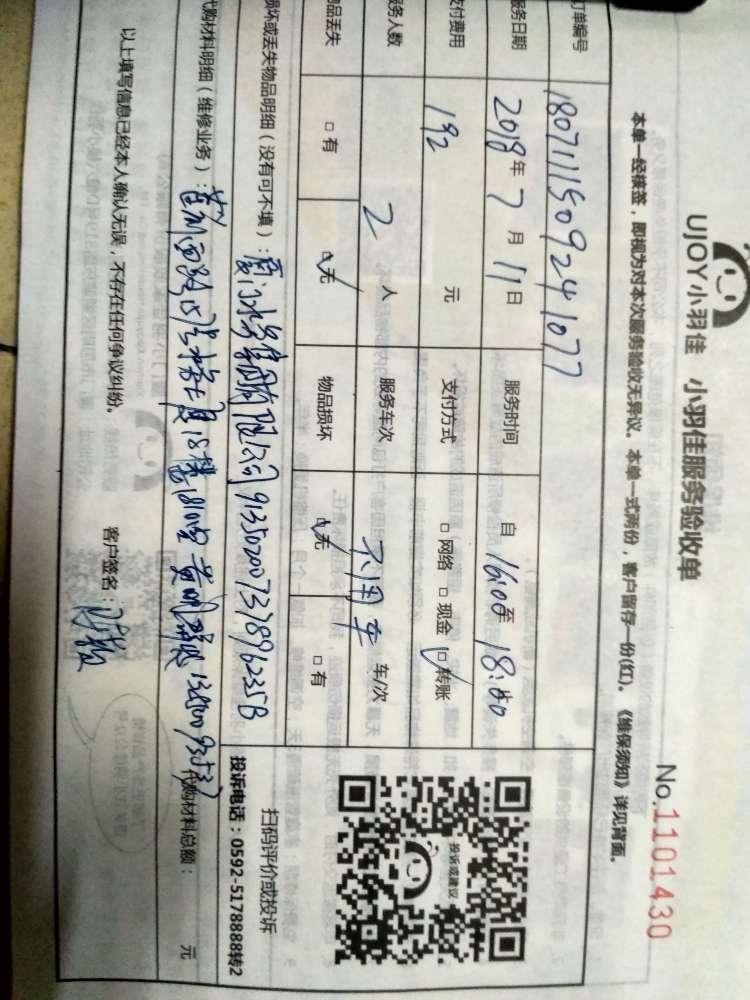 UJOY小羽佳 小羽佳服务验收单
No.1101430
本单一经签签，即视为对本次服务验收无异议。本单一式两份，客户留存一份(红)。《维保须知》详见背面。
订单编号 1807111509241077
服务日期 2018年7月11日 服务时间 自16:00至18:00
支付费用 192元 支付方式 □网络 □现金 □转账
服务人数 2人 服务车次 不用车 车/次
物品丢失 □有 □无 物品损坏 □无 □有
投诉或建议
扫码评价或投诉
投诉电话：0592-5178888转2
损坏或丢失物品明细（没有可不填）：厦门水务集团有限公司 91350200737896235B
代购材料明细（维修业务）： 代购材料总额： 元
以上填写信息已经本人确认无误，不存在任何争议纠纷。 客户签名：